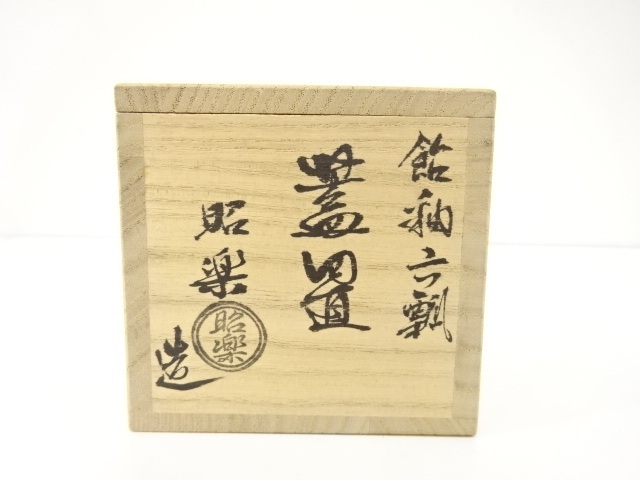 飴釉六瓢
蓋置
昭楽
造
昭楽